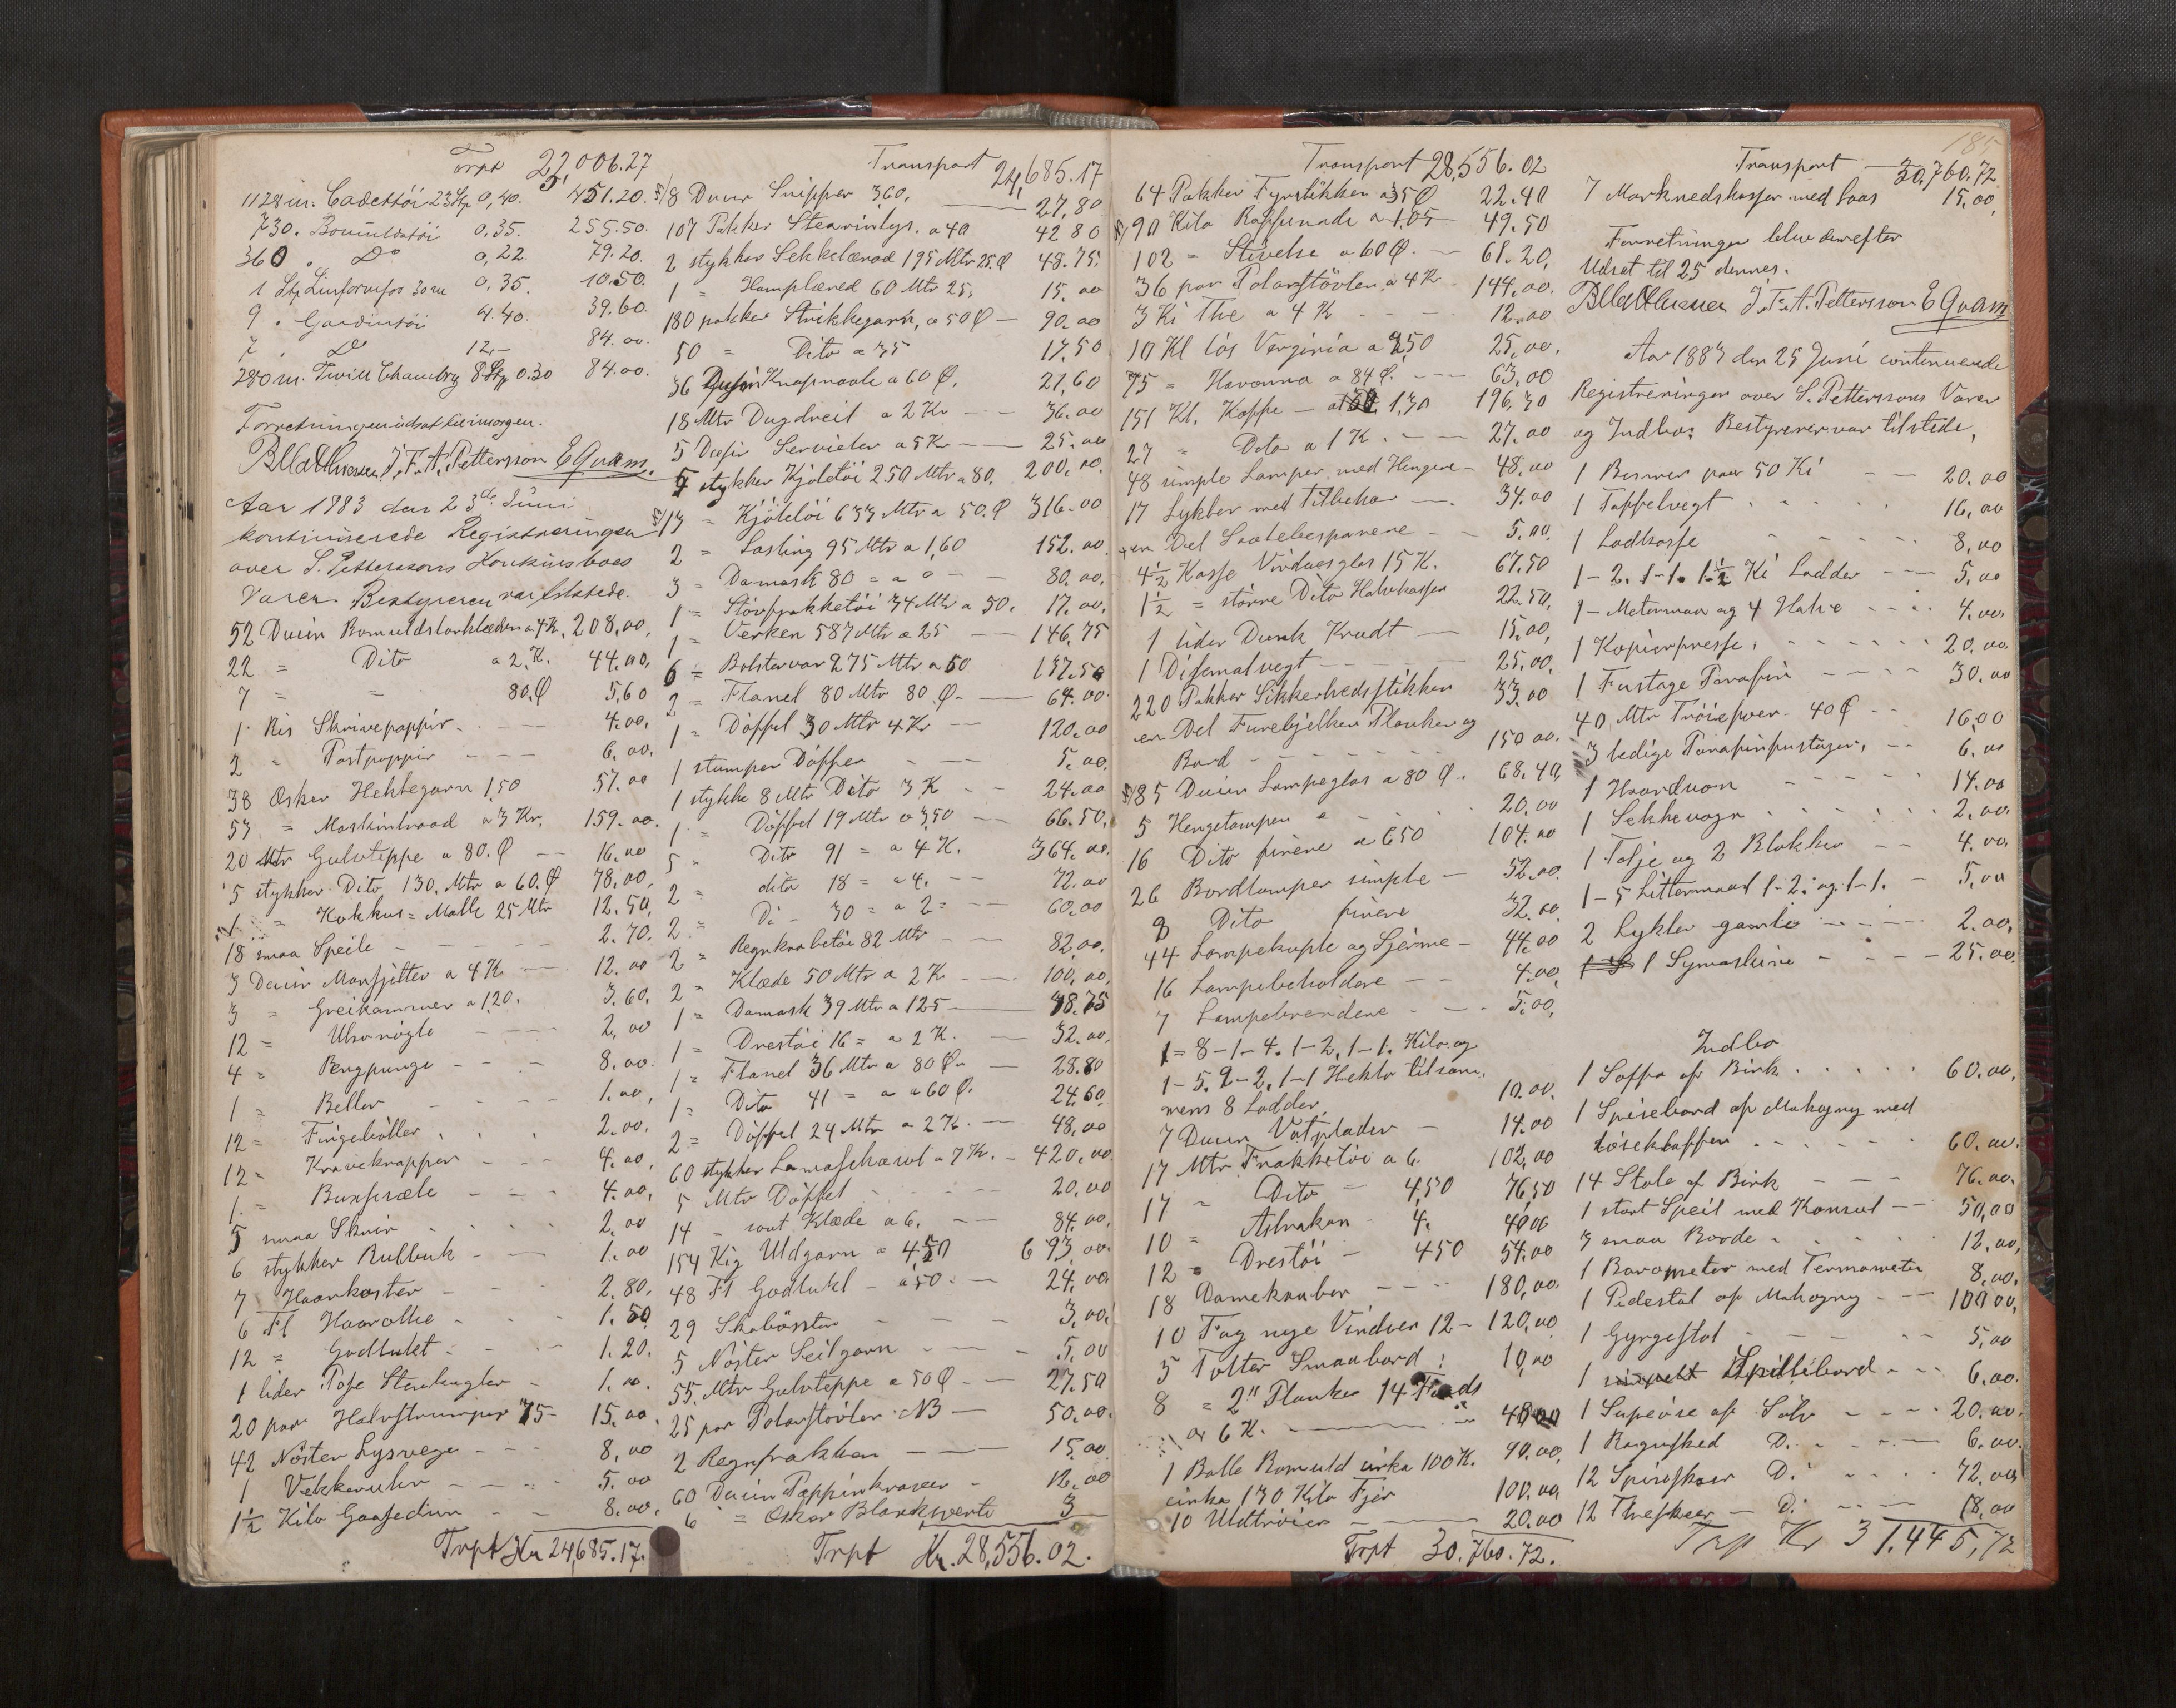 Trpt 22,006.27
1128 m. Cadettöi 23 Stp 0,40. 451.20.
730. Boumuldstöi 0.35. 255.50.
360 . Do 0,22. 79.20.
1 Stp Linforvifor 30 m 0.35. 10.50.
9 . Gardintöi 4.40. 39.60.
7 . Do 12.- 84.00.
280 m. Twill Chambry 8 Stp 0.30 84.00.
Forretningen udsat til imorgen.
J. F. A. Pettersson E Qvam.
Aar 1883 den 23de Juni
kontinuerede Registreringen
over S. Petterssons Konkursboes
Varer. Bestyreren var tilstede.
52 Dusin Bomuldstørklæder a 4 K. 208,00,
22 = Dito a 2. K. 44.00,
7 = = 80.Ø 5,60
1 Ris Skrivepappir. 4.00,
2 " Postpappir 6.00.
38 Æsker Heklegarn 1,50 57.00
53 = Maskintraad a 3 Kr. 159.00.
20 Mtr Gulvteppe a 80.Ø 16.00
5 stykker Dito 130. Mtr a 60.Ø 78.00.
1 = Kokkus = Matte 25 Mtr 12.50,
18 smaa Speile 2.70.
3 Dusin Mansjetter a 4 K 12.00
3 = Greikammer a 1,20. 3.60.
12 = Uhrnögle 2,00
4 = Pengpunge 8.00.
1 = Belter 1.00,
12 = Fingebøller 2.00.
12 = Kraveknapper 4.00,
1 = Buxesæle 4.00,
5 smaa Skrin 2.00
6 stykker Bulbuk 1.00
7 Haarkoster 2.80.
6 Fl Haarolie 1.50
12 = Godlukt 1.20.
1 liden Pose Stenkugler 1.00.
20 par Halvstrømper 75 15.00.
42 Nöster Lysvege 8.00
1 Vekkeruhr 5.00
1½ Kilo Gaasedun 8.00.
Trpt Kr 24,685.17.
Transport 24,685.17
5/8 Dusin Snipper 360, 27,80
107 Pakker Stearinlys. a 40 42 80
2 stykker Sekkelærred 195 Mtr 25.Ø 48.75.
1 = Hamplæred 60 Mtr 25, 15.00
180 pakker Strikkegarn, a 50 Ø 90.00
50 = Dito a 35 17,50
36 Dusin Knapnaale a 60 Ø. 21,60
18 Mtr Dugdreil a 2 Kr 36.00
5 Dusin Servieter a 5 Kr 25.00
5 stykker Kjöletöi 250 Mtr a 80. 200,00.
13 = Kjöletöi 633 Mtr a 50.Ø 316-00
2 = Lasting 95 Mtr a 1,60 152.00.
3 = Damask 80 = a " 80.00.
1 = Støvfrakketöi 34 Mtr a 50. 17.00.
1 = Verken 587 Mtr a 25 146,75
6 = Bolstervar 275 Mtr a 50 137.50
2 = Flanel 80 Mtr 80.Ø. 64.00.
1 = Döffel 30 Mtr 4 Kr 120.00
1 stumper Döffen 5.00.
1 stykke 8 Mtr Dito 3 K 24.00
1 = Döffel 19 Mtr a 3,50 66.50,
5 " Dito 91 = a 4 K. 364.00.
2 = dito 18 = a 4. 72.00
2 = Di - 30 = a 2 = 60.00
2 " Regnkaabetöi 82 Mtr 82,00.
2 " Klæde 50 Mtr a 2 K 100,00,
1 = Damask 39 Mtr a 125 48.75
1 = Drestöi 16 = a 2 K. 32.00,
1 = Flanel 36 Mtr a 80 Ø 28.80
1 = Dito 41 = a 60 Ø. 24.60,
2 = Döffel 24 Mtr a 2 K. 48,00
60 stykker Lamaschawl a 7 Kr. 420,00.
5 Mtr Döffel 20,00
14 = sort Klæde a 6. 84.00,
154 Kig Uldgarn a 4,50 693,00.
48 Fl Godlukt - a 50 24,00
29 Skobörster 3,00.
5 Nöster Seilgarn 5,00
55 Mtr Gulvteppe a 50 Ø 27.50
25 par Polarstövler NB 50.00.
2 Regnfrakker 15.00.
60 Dusin Pappirkraver 12,00
6 = Æsker Blanksverte 3
Trpt Kr. 28,556.02.
Transport 28,556.02
64 Pakker Fyrstikker a 35 Ø 22.40
90 Kilo Raffenade a 1,05 49.50
102 = Stivelse a 60 Ø. 61.20,
36 par Polarstövler, a 4 Kr 144,00.
3 Ki The a 4 K 12.00
10 Kl lös Verginia a 2,50 25,00.
75 = Havanna a 84 Ø. 63,00
151 Kl. Kaffe - a 1,30 196,30
27 = Dito a 1 K. 27.00
48 simple Lamper med Hengere 48,00
17 Lykter med tilbehør 34.00
en Del 5.00,
4½ Kasse Vinduesglas 15 K. 67.50
1½ = större Dito Halvkasser 22.50,
1 liden Dunk Krudt 15.00,
1 Desemalvegt 25.00.
220 Pakker Sikkerhedsstikker 33.00
en Del Furebjelker Planker og
Bord 150 00.
85 Dusin Lampeglas a 80 Ø. 68.40,
5 Hengelamper 20,00
16 Dito finere a 6,50 104.00
26 Bordlamper simple 52.00.
8 Dito finere 32.00
44 Lampekuple og Sjerme 44.00
16 Lampebeholdere 4.00,
7 Lampebrendere 5.00,
1 = 8 - 1 - 4. 1 - 2, 1 - 1. Kilo og
1 - 5. 2 - 2, 1 - 1 Hekto tilsam,
mens 8 Lodder. 10.00.
7 Dusin Vatplader 14.00
17 Mtr Frakketöi a 6 102,00
17 " Dito 4,50 76,50
10 = Astrakan 4. 40 00
12 = Drestöi 450 54.00
18 Damekaaber 180,00
10 Fag nye Vinduer 12 120,00
5 Tolter Smaabord 10,00
8 = 2" Planker 14 Fods
a 6 K. 48 00
1 Balle Bomuld cirka 100 K. 40.00,
cirka 130 Kilo Fjer 100.00
10 Uldtröier 20.00
Trpt 30.760.72.
185
Transport 30,760.72
7 Markedskasser med Laas 15,00,
Forretningen blev derefter
Udsat til 25 dennes.
J. F. A. Pettersson E Qvam
Aar 1883 den 25 Juni continuerede
Registreringen over S. Petterssons Varer
og Indbo; Bestyreren var tilstede,
1 Bismer paa 50 Ki 20.00
1 Taffelvegt 16,00
1 Ladkasse 8,00
1 - 2. 1 - 1. 1 ½ Ki Lodder 5,00
1 - Metermaa og 4 Halve 4.00,
1 Kopierpresse, 20.00.
1 Fustage Parafin 30.00
40 Mtr Tröiefoer 40 Ø 16.00
3 ledige Parafinfustager, 6.00
1 Haandvogn 14.00
1 Sekkevogn 2,00.
1 Talje og 2 Blokker 4.00,
1 - 5 Littermaal 1 - 2; og 1 - 1. 5,00
2 Lykter gamle 2.00,
1 Symaskine 25.00.
Indbo
1 Soffa af Birk 60.00,
1 Spisebord af Mahogny med
löseklapper 60.00.
14 Stole af Birk 76.00.
1 stort Speil med Konsol 50,00
3 smaa Borde 12.00,
1 Barometer med Termometer 8,00.
1 Pidestal af Mahogny 100 00,
1 Gyngestol 5,00
1 Spillebord 6.00.
1 Supeöse af Sölv 20.00.
1 Ragufked D. 6.00.
12 Spiseskeer D. 72.00
12 Theskeer D. 18.00
Trp Kr 31,445,72